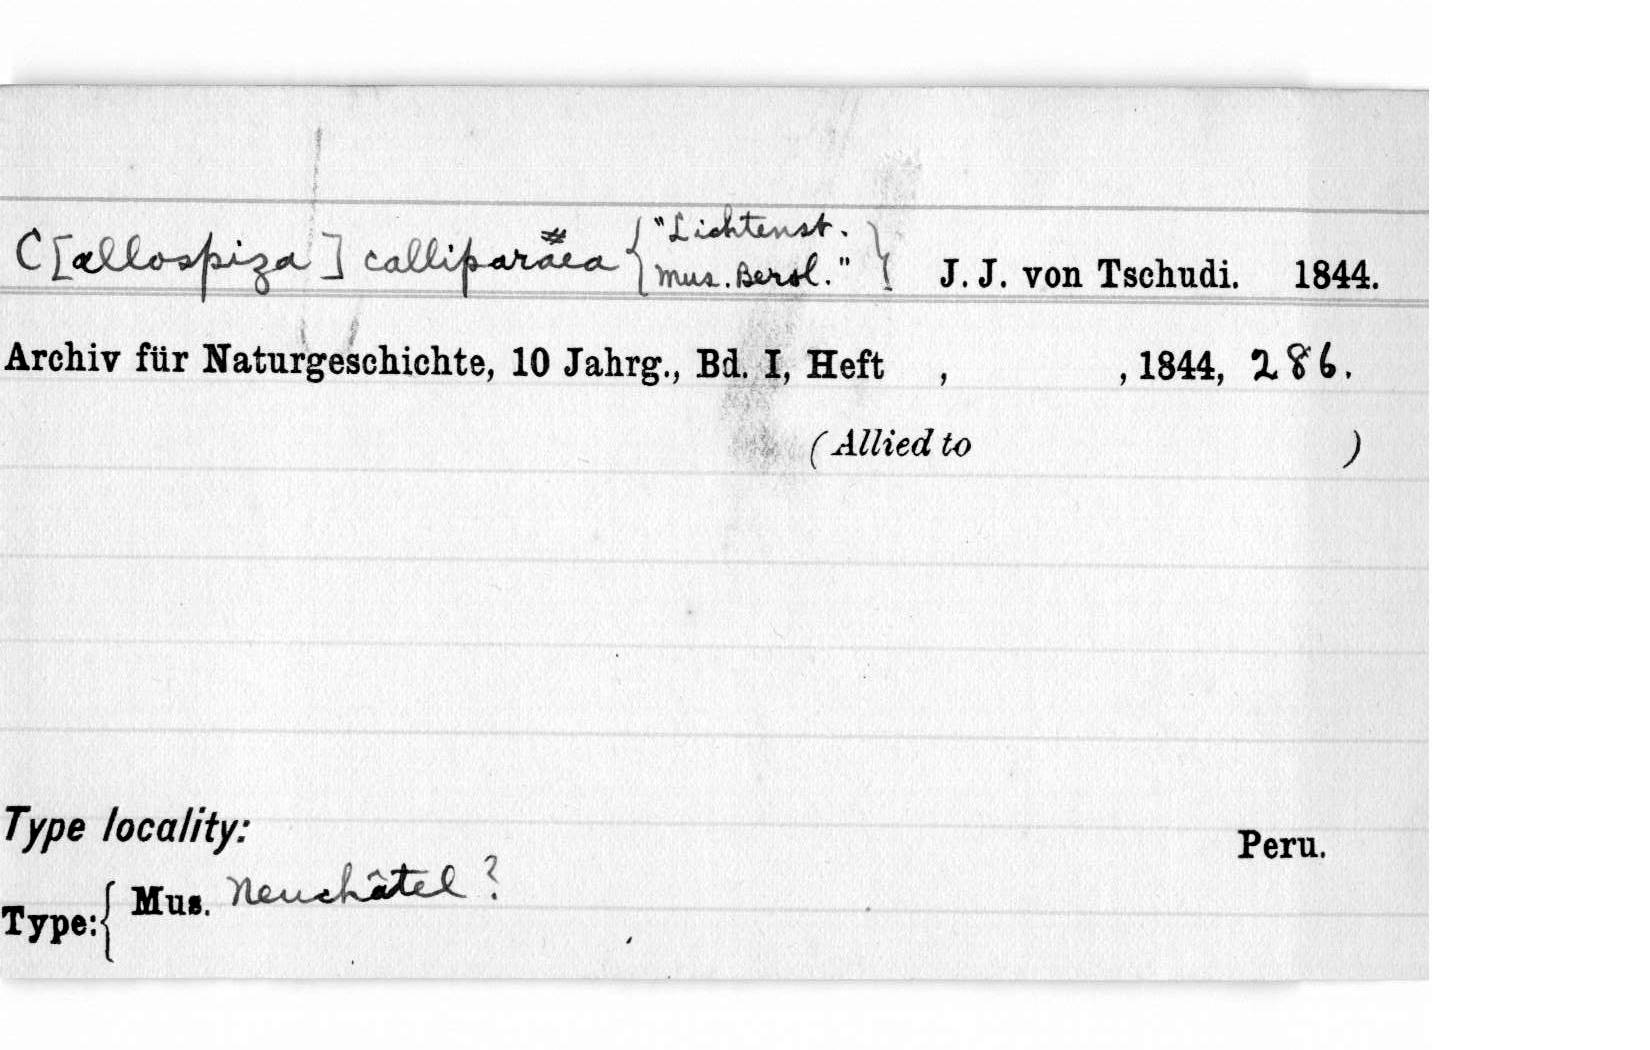 C[allospiza] calliparaea {"Lichtenst. Mus. Berol."} J. J. von Tschudi. 1844.
Archiv für Naturgeschichte, 10 Jahrg., Bd. I, Heft , , 1844, 286.
(Allied to )
Type locality: Peru.
Type: { Mus. Neuchâtel ?